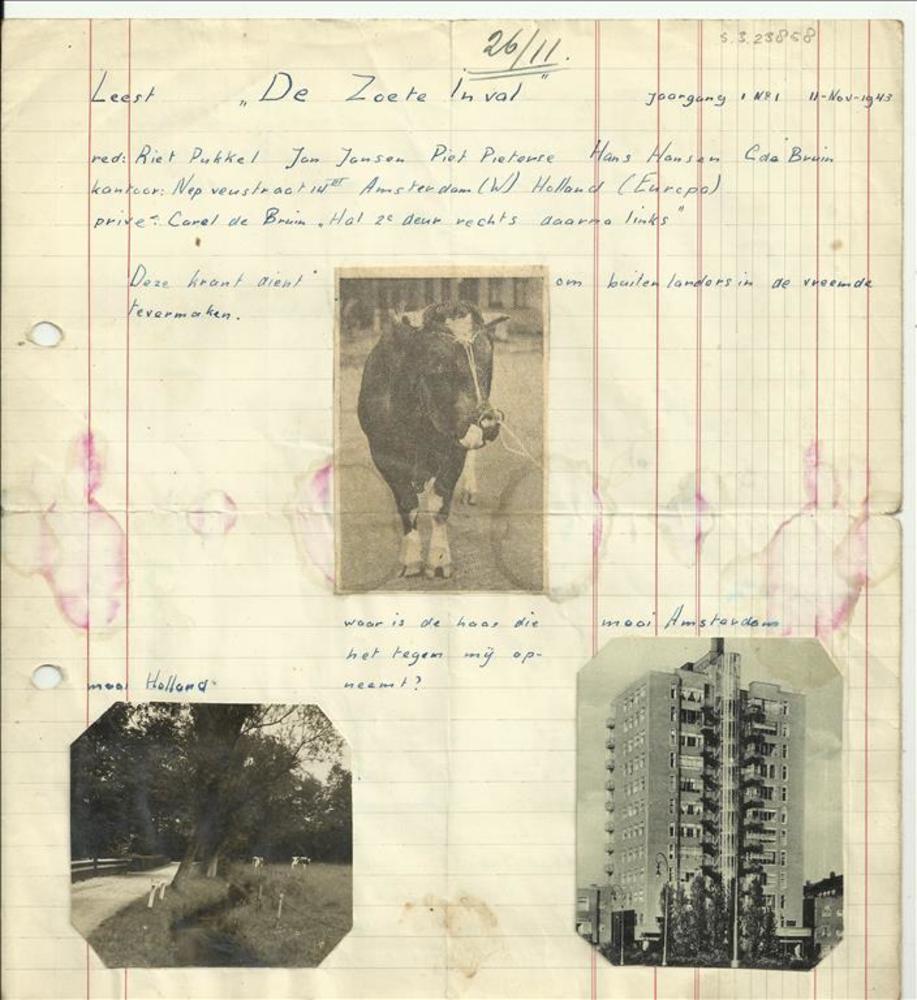 26/11.
S.3.23858
Leest „De Zoete Inval" Jaargang 1 No 1 11-Nov-1943
red: Riet Pukkel Jan Jansen Piet Pieterse Hans Hansen C de Bruin
kantoor: Nepveustraat III Amsterdam (W) Holland (Europa)
privé: Carel de Bruin „Hal 2e deur rechts daarna links"
Deze krant dient om buitenlanders in de vreemde
tevermaken.
waar is de haas die
het tegen mij op-
neemt?
mooi Amsterdam
mooi Holland